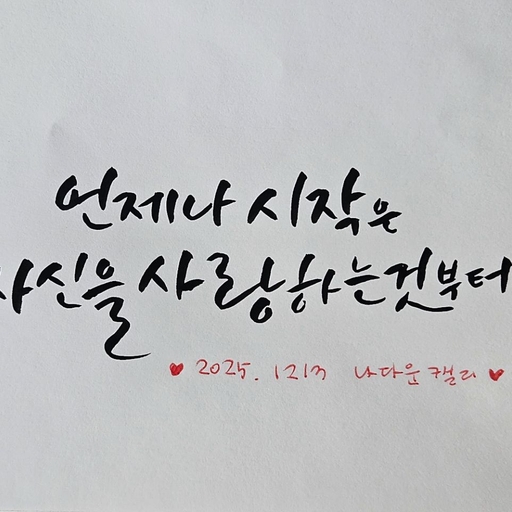 언제나 시작은
자신을 사랑하는것부터
♥ 2025. 1213 나다운캘리 ♥